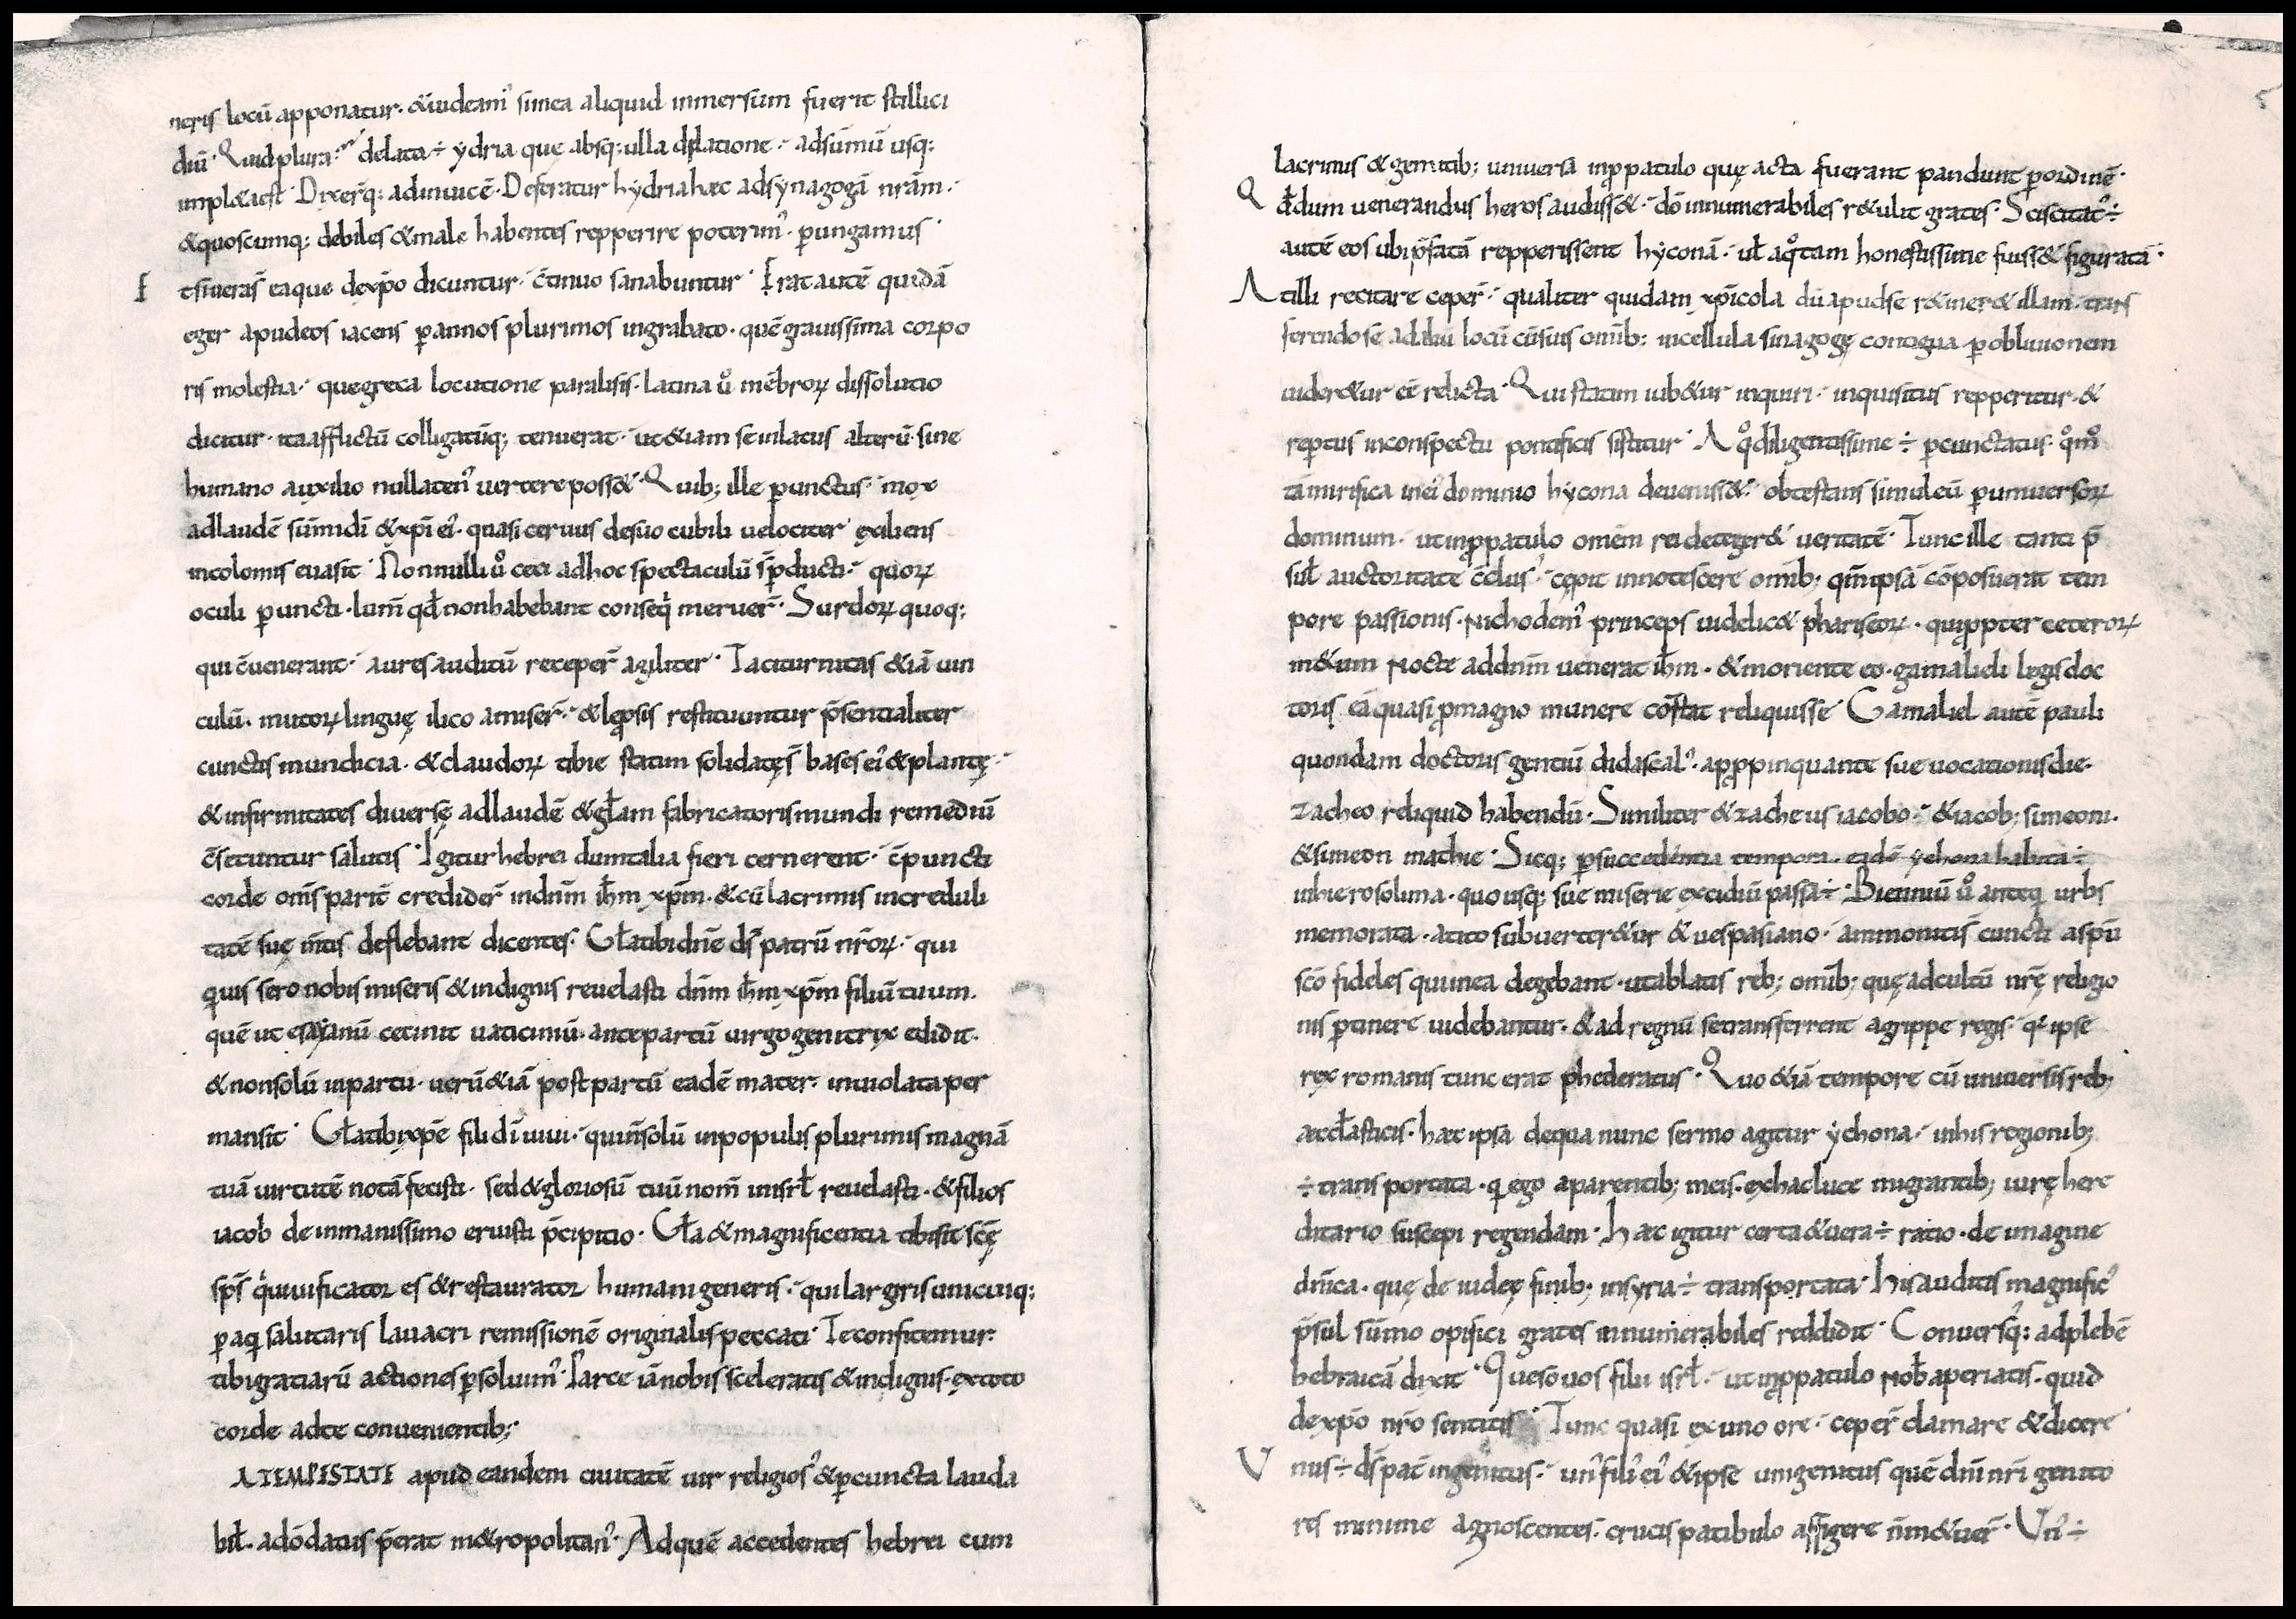 neris locū apponatur. &uideam᾿ si in ea aliquid inmersum fuerit stillici
diū. Quid plura? delata ÷ ydria que absq; ulla dilatione. adsūmū usq;
impl&a est. Dixer̄q; adinuicē. Deferatur hydria hæc adsynagogā nr̄am.
&quoscumq; debiles &male habentes repperire poterim᾿. pungamus
Et si uera s̄ ea que de xp̄o dicuntur. c̄tinuo sanabuntur. Erat autē quidā
eger apud eos iacens p annos plurimos ingrabato. quē grauissima corpo
ris molestia. que greca locutione paralisis. latina u᷎ mēbroꝝ dissolutio
dicitur. ita afflictū colligatūq; tenuerat. ut &iam se in latus alterū sine
humano auxilio nullaten᾿ uertere poss&. Quib; ille punctus. mox
ad laudē sūmi dī &xp̄i ei᾿. quasi ceruus de suo cubili uelociter exiliens
incolomis euasit. Nonnulli u᷎ ceci adhoc spectaculū s̄ pducti. quoꝝ
oculi puncti. lum̄ qd̄ non habebant conseq̇ meruer̄. Surdoꝝ quoq;
qui c̄uenerant. aures auditū receper̄ agiliter. Taciturnitas &iā uin
culū. mutoꝝ linguę ilico amiser̄. &leprosis restituuntur p̄sentialiter
cunctis mundicia. &claudoꝝ tibie statim solidatę s̄ bases ei᾿ &plantę.
&infirmitates diuersę ad laudē &gl̄am fabricatoris mundi remediū
c̄secuntur salutis. Igitur hebrei dum talia fieri cernerent. c̄puncti
corde om̄s parit̄ credider̄ in dn̄m ih̄m xp̄m. &cū lacrimis increduli
tatē suę m̄tis deflebant dicentes. Gl̄a tibi dn̄e ds̄ patrū nr̄oꝝ. qui
quis sero nobis miseris &indignis reuelasti dn̄m ih̄m xp̄m filiū tuum.
quē ut esayanū cecinit uaticiniū. ante partū uirgo genitrix edidit.
&non solū in partu. uerū &iā post partū eadē mater. inuiolata per
mansit. Gl̄a tibi xp̄e fili dī uiui. qui n̄ solū in populis plurimis magnā
tuā uirtutē notā fecisti. sed &gloriosū tuū nom̄ in isrl̄ reuelasti. &filios
iacob de inmanissimo eruisti p̄cipitio. Gl̄a &magnificentia tibi sit sc̄ę
sp̄s q̇ uiuificator es &restaurator humani generis. qui largiris unicuiq;
p aq̄ salutaris lauacri remissionē originalis peccati. Te confitemur.
tibi gratiarū actiones psoluim᾿. Parce iā nobis sceleratis &indignis. ex toto
corde ad te conuenientib;
A TEMPESTATE apud eandem ciuitatē uir religios᾿ &p cuncta lauda
bil̄. adōdatus p̄erat m&ropolitan᾿. Ad quē accedentes hebrei cum
lacrimis &gemitib; uniuersa in ppatulo quę acta fuerant pandunt p ordinē.
Qd̄ dum uenerandus heros audiss&. dō innumerabiles r&ulit grates. Sciscitat᾿ ÷
autē eos ubi p̄fatā repperissent hyconā. ul̄ a quo tam honestissime fuiss& figurata.
At illi recitare ceper̄. qualiter quidam xp̄icola dū apud se r&iner& illam. trans
ferendo se ad aliū locū cū suis omīb; in cellula sinagogę contigua p obliuionem
uider&ur eē relicta. Qui statim iub&ur inquiri. inquisitus repperitur. &
reptus in conspectu pontificis sistitur. A quo diligentissime ÷ pcunctatus. quom᾿
tā mirifica in ei᾿ dominio hycona deueniss&. obtestans simul eū p uniuersoꝝ
dominum. ut in ppatulo omēm rei deteger& ueritatē. Tunc ille tanti p̄
sul̄ auctoritate c̄clus᾿. cępit innotescere omīb; qm̄ ipsā cōposuerat tem
pore passionis. Nichodem᾿ princeps uidelic& phariseoꝝ. qui ppter ceteroꝝ
m&um nocte ad dn̄m uenerat ih̄m. &moriente eo. gamalieli legis doc
toris eā quasi p magno munere cōstat reliquisse. Gamaliel autē pauli
quondam doctoris gentiū didascal᾿. appropinquante sue uocationis die.
zacheo reliquid habendū. Similiter &zacheus iacobo. &iacob; simeoni.
&simeon mathie. Sicq; p succedentia tempora. eadē ychona habita ÷
in hierosolima. quo usq; sue miserie excidiū passa ÷. Bienniū u᷎ anteq̄ urbs
memorata. a tito subuerter&ur &uespasiano. āmoniti s̄ cuncti a sp̄u
sc̄o fideles qui in ea degebant. ut ablatis reb; omīb; quę ad cultū nr̄ę religio
nis ptinere uidebantur. &ad regnū se transferrent agrippe regis. q᷎ ipse
rex romanis tunc erat phederatus. Quo &iā tempore cū uniuersis reb;
æccl̄asticis. hæc ipsa de qua nunc sermo agitur ychona. in his regionib;
÷ transportata. q̄ ego a parentib; meis. ex hac luce migrantib; iurę here
ditario suscepi regendam. Hæc igitur certa &uera ÷ ratio. de imagine
dn̄ica. quę de iudeę finib; in syria ÷ transportata. His auditis magnific᾿
p̄sul sūmo opifici grates innumerabiles reddidit. Conuers᾿q; ad plebē
hebraicā dixit. Queso uos filii isrl̄. ut in ppatulo nob̄ aperiatis. quid
de xp̄o nr̄o sentitis. Tunc quasi ex uno ore. ceper̄ clamare &dicere.
Vnus ÷ ds̄ pat̄ ingenitus. un᾿ fili᾿ ei᾿ &ipse unigenitus quē dūi nr̄i genito
res minime agnoscentes. crucis patibulo affigere n̄ m&uer̄. Vn᾿ ÷